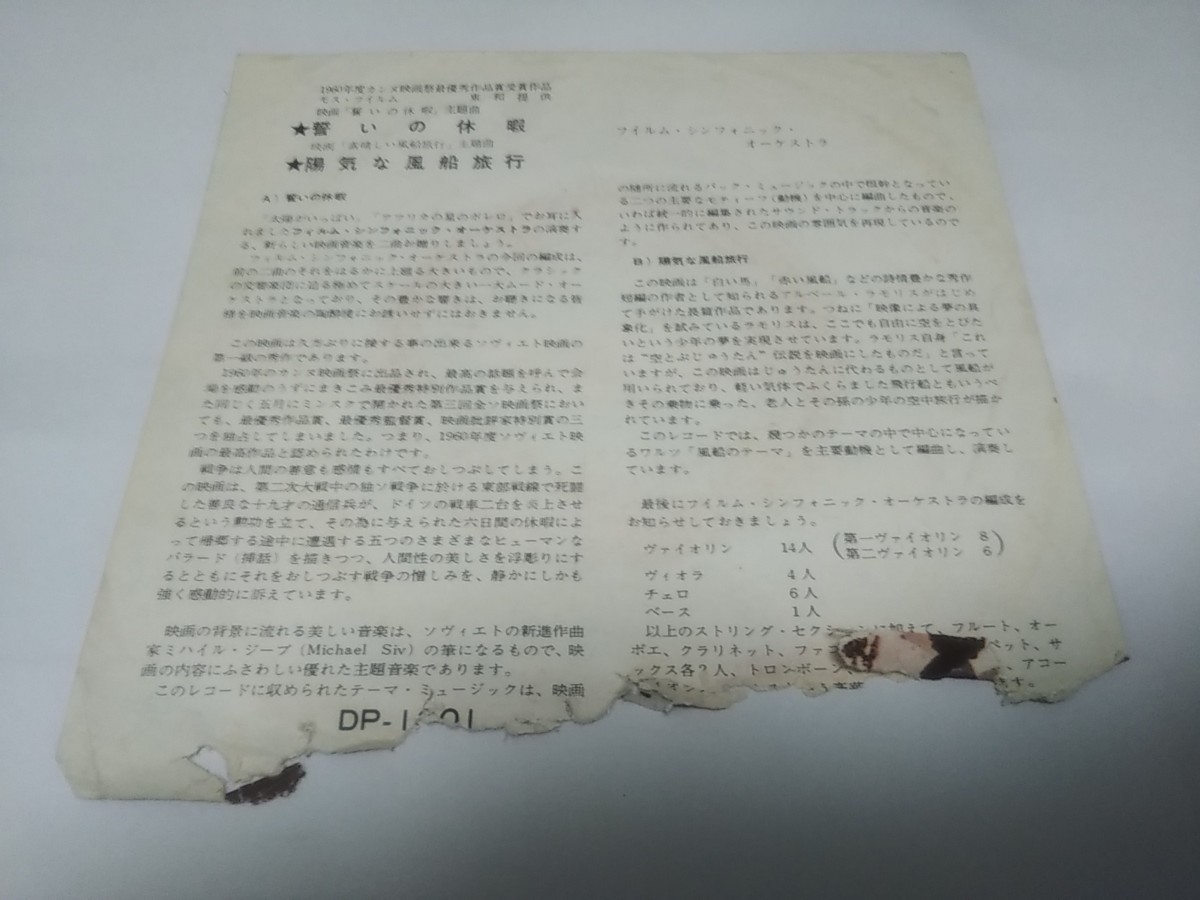 1960年度カンヌ映画祭最優秀作品賞受賞作品
モス・フイルム 東和提供
映画「誓いの休暇」主題曲
★誓いの休暇
映画「素晴しい風船旅行」主題曲
★陽気な風船旅行
フイルム・シンフォニック・
オーケストラ
A) 誓いの休暇
「太陽がいっぱい」「アフリカの星のボレロ」でお耳に入
れましたフィルム・シンフォニック・オーケストラの演奏す
る、新らしい映画音楽を二曲お贈りしましょう。
フィルム・シンフォニック・オーケストラの今回の編成は、
前の二曲のそれをはるかに上廻る大きいもので、クラシック
の交響楽団に迫る極めてスケールの大きい一大ムード・オー
ケストラとなっており、その豊かな響きは、お聴きになる皆
様を映画音楽の陶酔境にお誘いせずにはおきません。
この映画は久方ぶりに接する事の出来るソヴィエト映画の
第一級の秀作であります。
1960年のカンヌ映画祭に出品され、最高の話題を呼んで会
場を感動のうずにまきこみ最優秀特別作品賞を与えられ、ま
た同じく五月にミンスクで開かれた第三回全ソ映画祭におい
ても、最優秀作品賞、最優秀監督賞、映画批評家特別賞の三
つを独占してしまいました。つまり、1960年度ソヴィエト映
画の最高作品と認められたわけです。
戦争は人間の善意も感情もすべておしつぶしてしまう。こ
の映画は、第二次大戦中の独ソ戦争に於ける東部戦線で死闘
した善良な十九才の通信兵が、ドイツの戦車二台を炎上させ
るという勲功を立て、その為に与えられた六日間の休暇によ
って帰郷する途中に遭遇する五つのさまざまなヒューマンな
バラード(挿話)を描きつつ、人間性の美しさを浮彫りにす
るとともにそれをおしつぶす戦争の憎しみを、静かにしかも
強く感動的に訴えています。
映画の背景に流れる美しい音楽は、ソヴィエトの新進作曲
家ミハイル・ジーブ(Michael Siv)の筆になるもので、映
画の内容にふさわしい優れた主題音楽であります。
このレコードに収められたテーマ・ミュージックは、映画
DP-1
の随所に流れるバック・ミュージックの中で根幹となってい
る二つの主要なモティーフ(動機)を中心に編曲したもので、
いわば統一的に編集されたサウンド・トラックからの音楽の
ように作られてあり、この映画の雰囲気を再現しているので
す。
B) 陽気な風船旅行
この映画は「白い馬」「赤い風船」などの詩情豊かな秀作
短編の作者として知られるアルベール・ラモリスがはじめ
て手がけた長篇作品であります。つねに「映像による夢の具
象化」を試みているラモリスは、ここでも自由に空をとびた
いという少年の夢を実現させています。ラモリス自身「これ
は“空とぶじゅうたん”伝説を映画にしたものだ」と言って
いますが、この映画はじゅうたんに代わるものとして風船が
用いられており、軽い気体でふくらました飛行船ともいうべ
きその乗物に乗った、老人とその孫の少年の空中旅行が描か
れています。
このレコードでは、幾つかのテーマの中で中心になってい
るワルツ「風船のテーマ」を主要動機として編曲し、演奏し
ています。
最後にフイルム・シンフォニック・オーケストラの編成を
お知らせしておきましょう。
ヴァイオリン 14人 (第一ヴァイオリン 8
第二ヴァイオリン 6)
ヴィオラ 4人
チェロ 6人
ベース 1人
以上のストリング・セクションに加えて、フルート、オー
ボエ、クラリネット、ファゴ ペット、サ
ックス各2人、トロンボーン、 、アコー